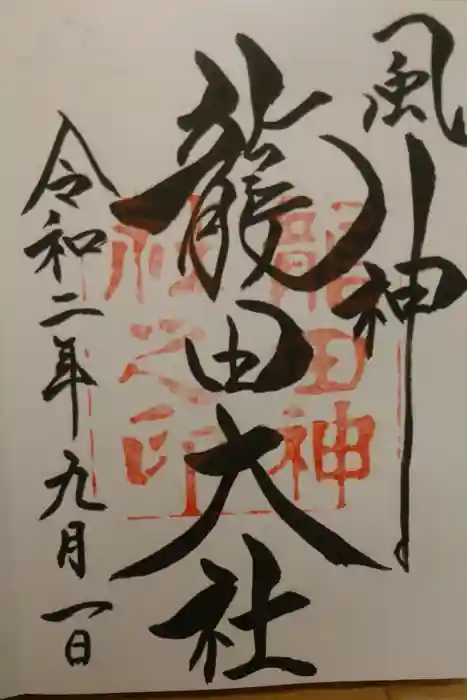 風神
龍田大社
令和二年九月一日
龍田神
社之印